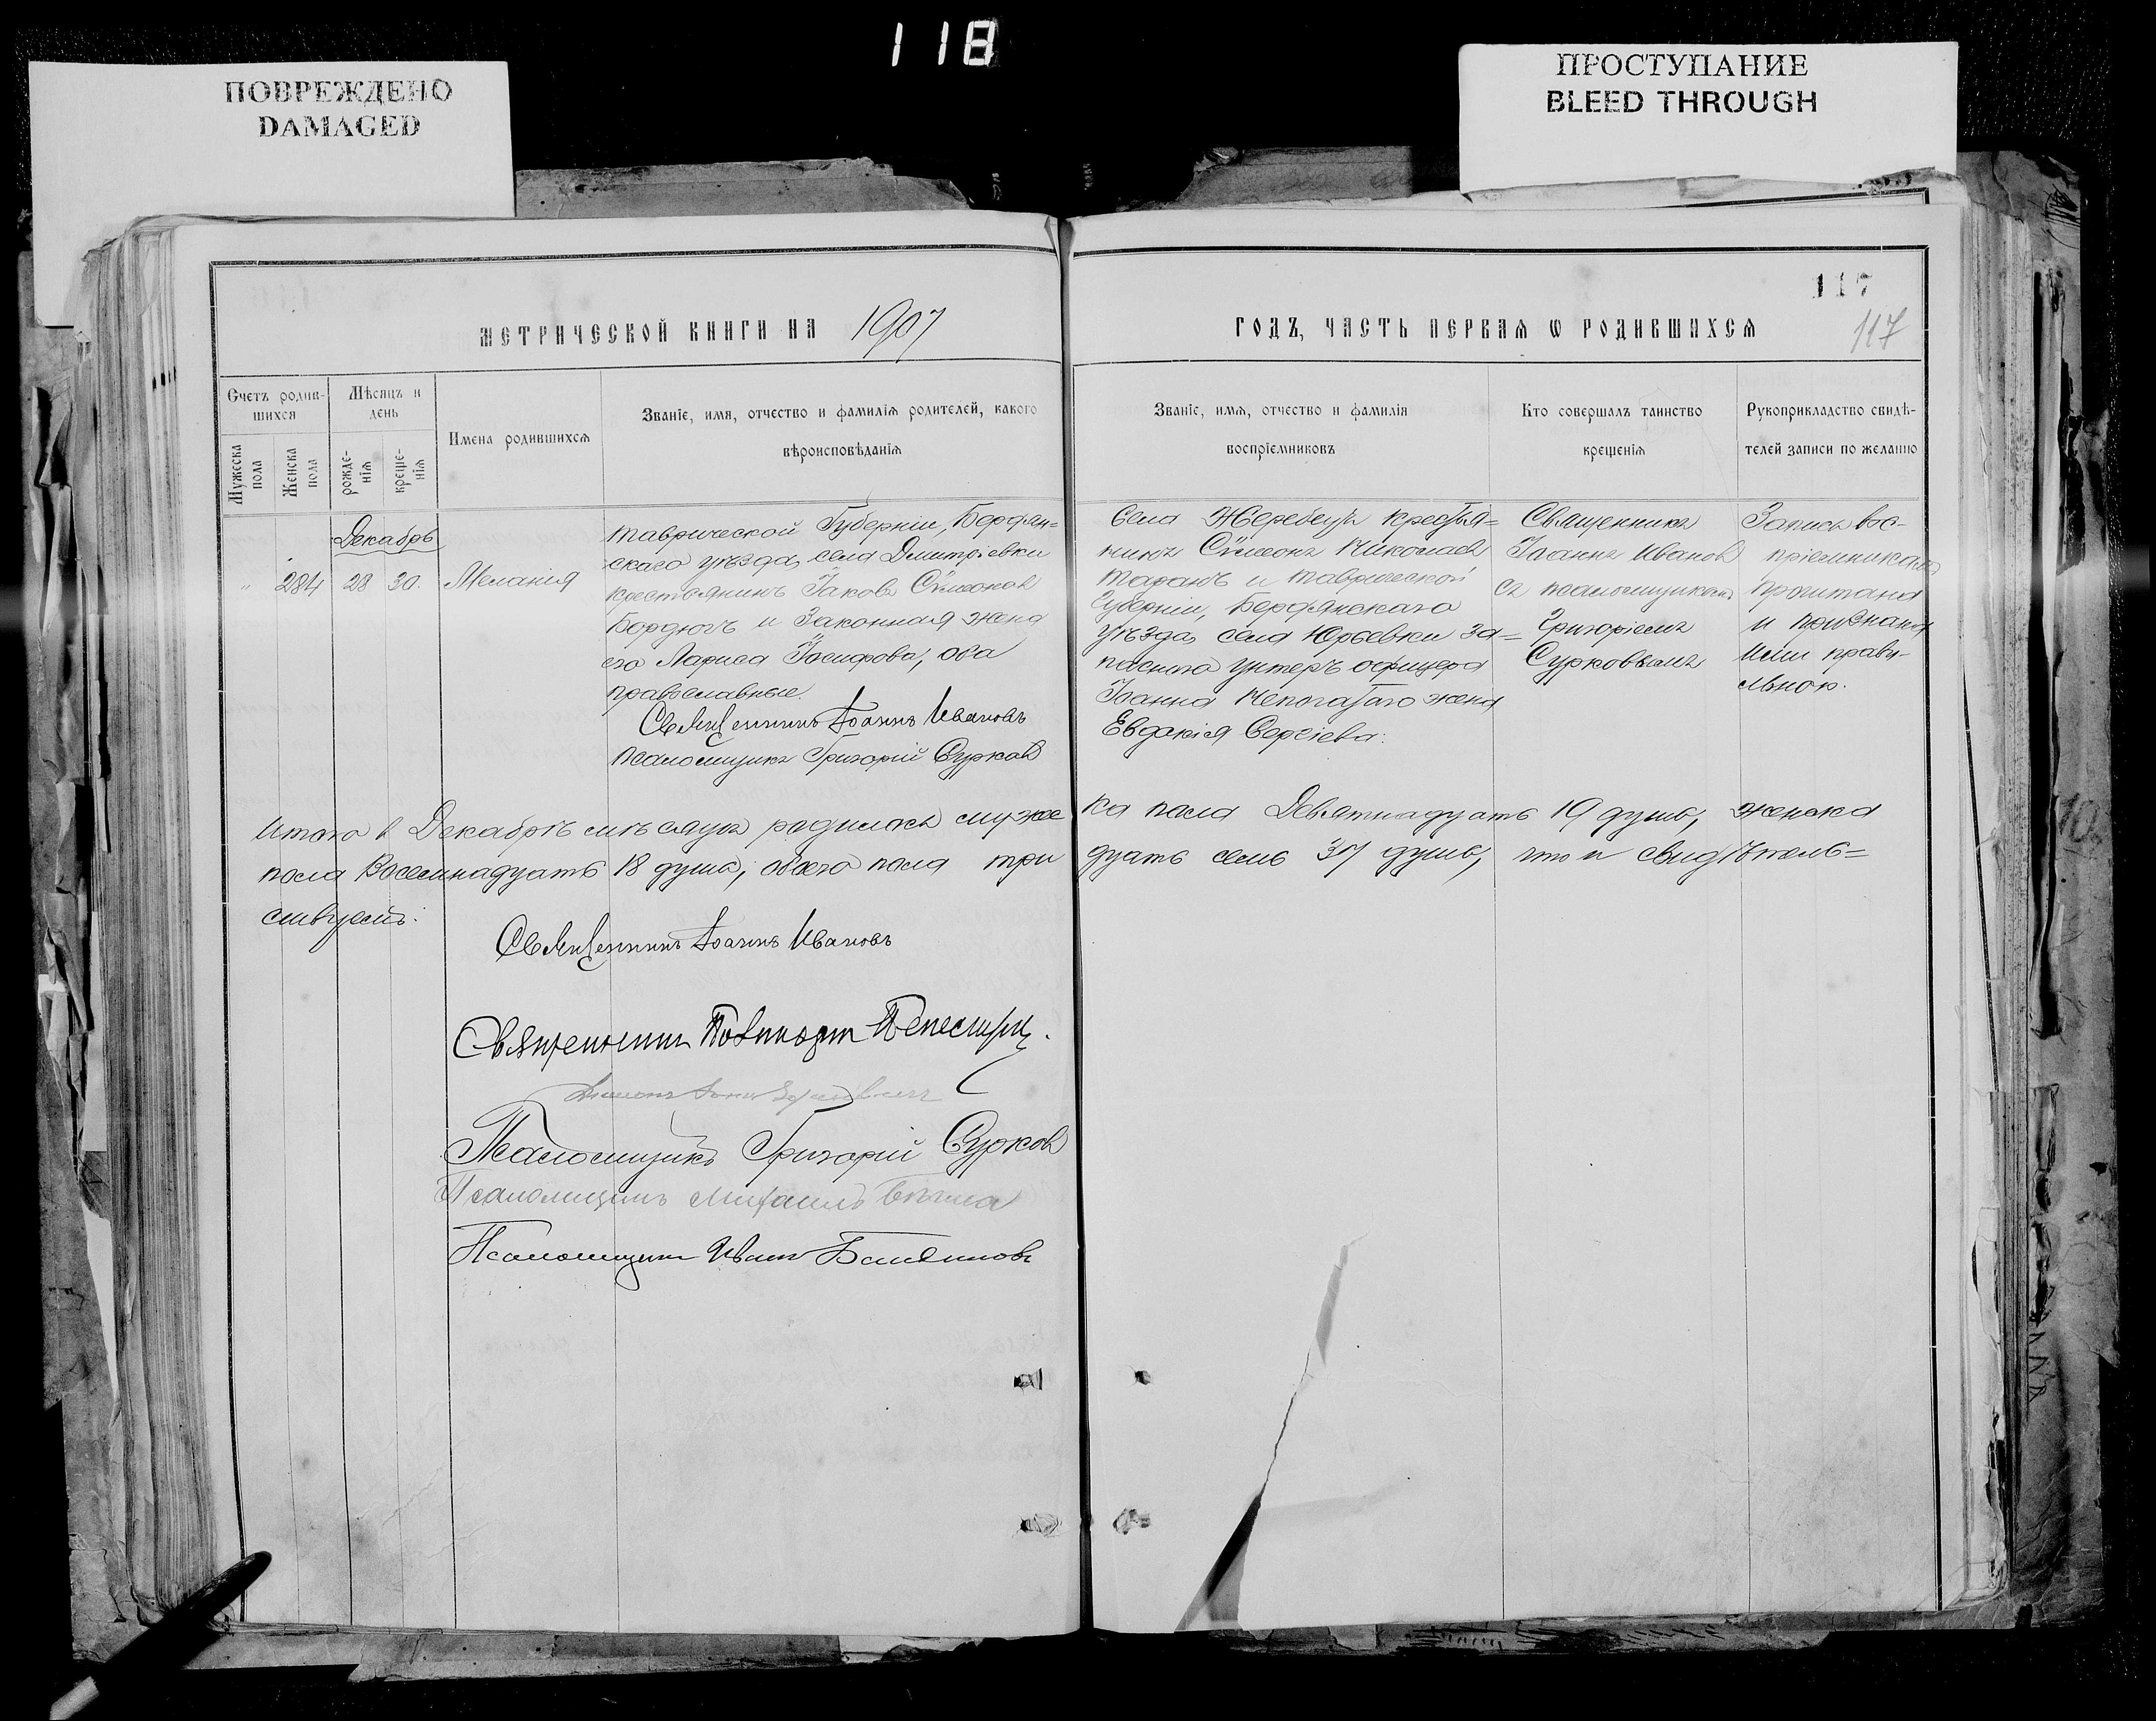 118
ПОВРЕЖДЕНО
DAMAGED
ПРОСТУПАНИЕ
BLEED THROUGH
117
117
МЕТРИЧЕСКОЙ КНИГИ НА 1907
ГОДЪ, ЧАСТЬ ПЕРВАѦ Ѡ РОДИВШИХСѦ
Счетъ родив-
шихся
Мѣсяцъ и
день
Мужеска
пола
Женска
пола
рожде-
нія
креще-
нія
Имена родившихсѧ
Званіе, имя, отчество и фамиліѧ родителей, какого
вѣроисповѣданіѧ
Званіе, имѧ, отчество и фамилія
воспріемниковъ
Кто совершалъ таинство
крещенія
Рукоприкладство свидѣ-
телей записи по желанію
Декабрь
" 284 28 30. Меланія
Таврической Губерніи, Бердян=
скаго уѣзда, села Димитріевки
крестьянинъ Іаковъ Сѷмеонов
Бордюгъ и законная жена
его Лариса Іосифова, оба
православные.
Священникъ Іоаннъ Ивановъ
Псаломщикъ Григорій Сурков
Села Жеребецъ крестья=
нинъ Сѷмеонъ Николаев
Таранъ и Таврической
Губерніи, Бердянскаго
уѣзда, села Юрьевки за=
паснаго унтеръ офицера
Іоанна жена
Евдокія Сергіева.
Священникъ
Іоаннъ Иванов
съ псаломщикомъ
Григоріемъ
Сурковымъ
Запись вос-
пріемниками
прочитана
и признана
ими прави-
льною.
Итого в Декабрѣ мѣсяцѣ родилось муже
ка пола Девятнадцать 19 душъ, женска
пола Восемнадцать 18 душъ, обоего пола три
дцать семь 37 душъ, что и свидѣтель=
ствуемъ:
Священникъ Іоаннъ Ивановъ
Священникъ
Псаломщикъ Григорій Сурков
Псаломщикъ Михаилъ
Псаломщикъ Иванъ